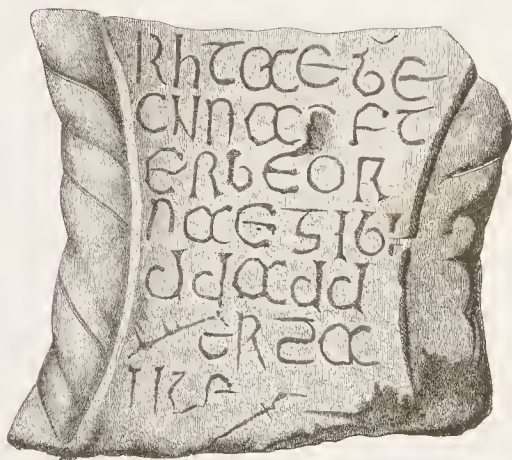 RHTAEBE
CUNAEFT
ERBEOR
NAEGIBI
DDADD
ERSA
ULE